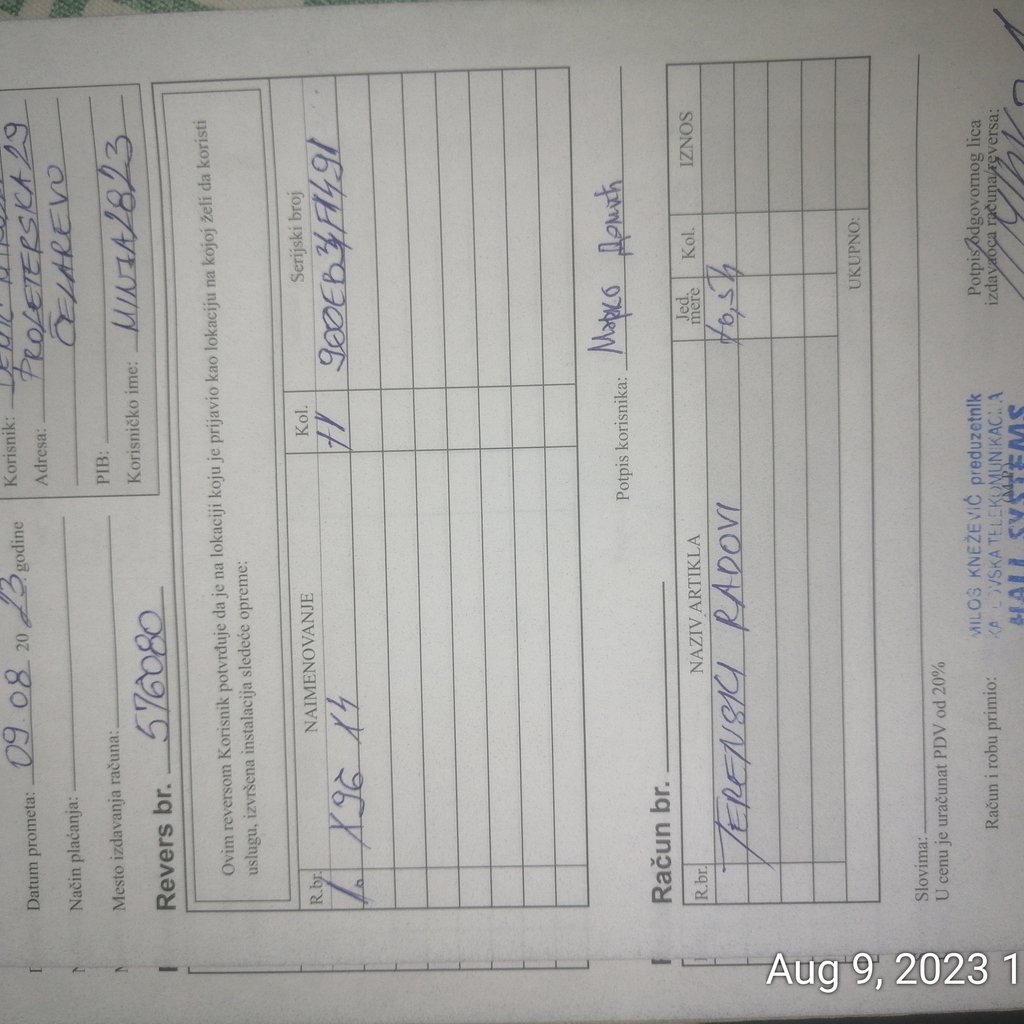 Korisnik:
Adresa: PROLETERSKA 29
ČELAREVO
PIB:
Korisničko ime: MINJA2823
Datum prometa: 09.08 2023. godine
Način plaćanja:
Mesto izdavanja računa:
Revers br. 576080
Ovim reversom Korisnik potvrđuje da je na lokaciji koju je prijavio kao lokaciju na kojoj želi da koristi
uslugu, izvršena instalacija sledeće opreme:
R.br. NAIMENOVANJE Kol. Serijski broj
1. X96 X4
Potpis korisnika: Марко
Račun br.
R.br. NAZIV ARTIKLA Jed. mere Kol. IZNOS
TERENSKI RADOVI
UKUPNO:
Slovima:
U cenu je uračunat PDV od 20%
Račun i robu primio:
MILOŠ KNEŽEVIĆ preduzetnik
TELEKOMUNIKACIJA
HALL SYSTEMS
Potpis odgovornog lica
izdavaoca računa/reversa:
Aug 9, 2023 1